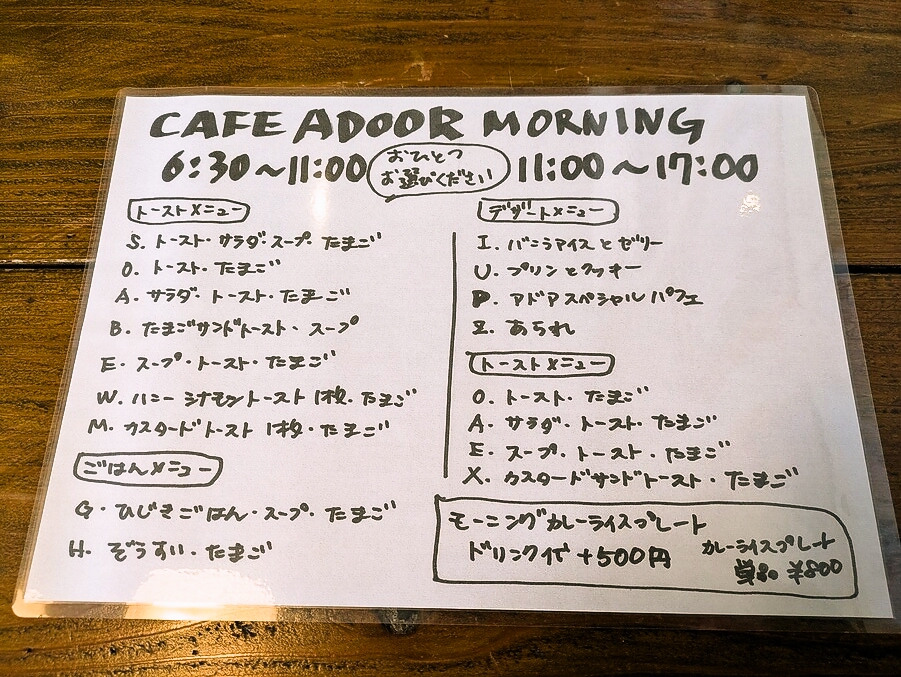 CAFE ADOOR MORNING
6:30～11:00
おひとつ
お選びください
11:00～17:00
トーストメニュー
S. トースト・サラダ・スープ・たまご
O. トースト・たまご
A. サラダ・トースト・たまご
B. たまごサンドトースト・スープ
E. スープ・トースト・たまご
W. ハニーシナモントースト1枚・たまご
M. カスタードトースト1枚・たまご
ごはんメニュー
G. ひじきごはん・スープ・たまご
H. ぞうすい・たまご
デザートメニュー
I. バニラアイスとゼリー
U. プリンとクッキー
P. アドアスペシャルパフェ
Z. あられ
トーストメニュー
O. トースト・たまご
A. サラダ・トースト・たまご
E. スープ・トースト・たまご
X. カスタードサンドトースト・たまご
モーニングカレーライスプレート
ドリンク代+500円
カレーライスプレート
単品 ¥800